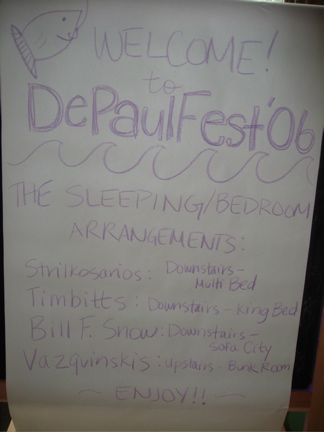 WELCOME!
to
DePaulFest '06
THE SLEEPING/BEDROOM
ARRANGEMENTS:
Strilkosarios: Downstairs -
Multi Bed
Timbitts: Downstairs - King Bed
Bill F. Snow: Downstairs -
Sofa City
Vazquinskis: upstairs - Bunk Room
~ ENJOY!! ~